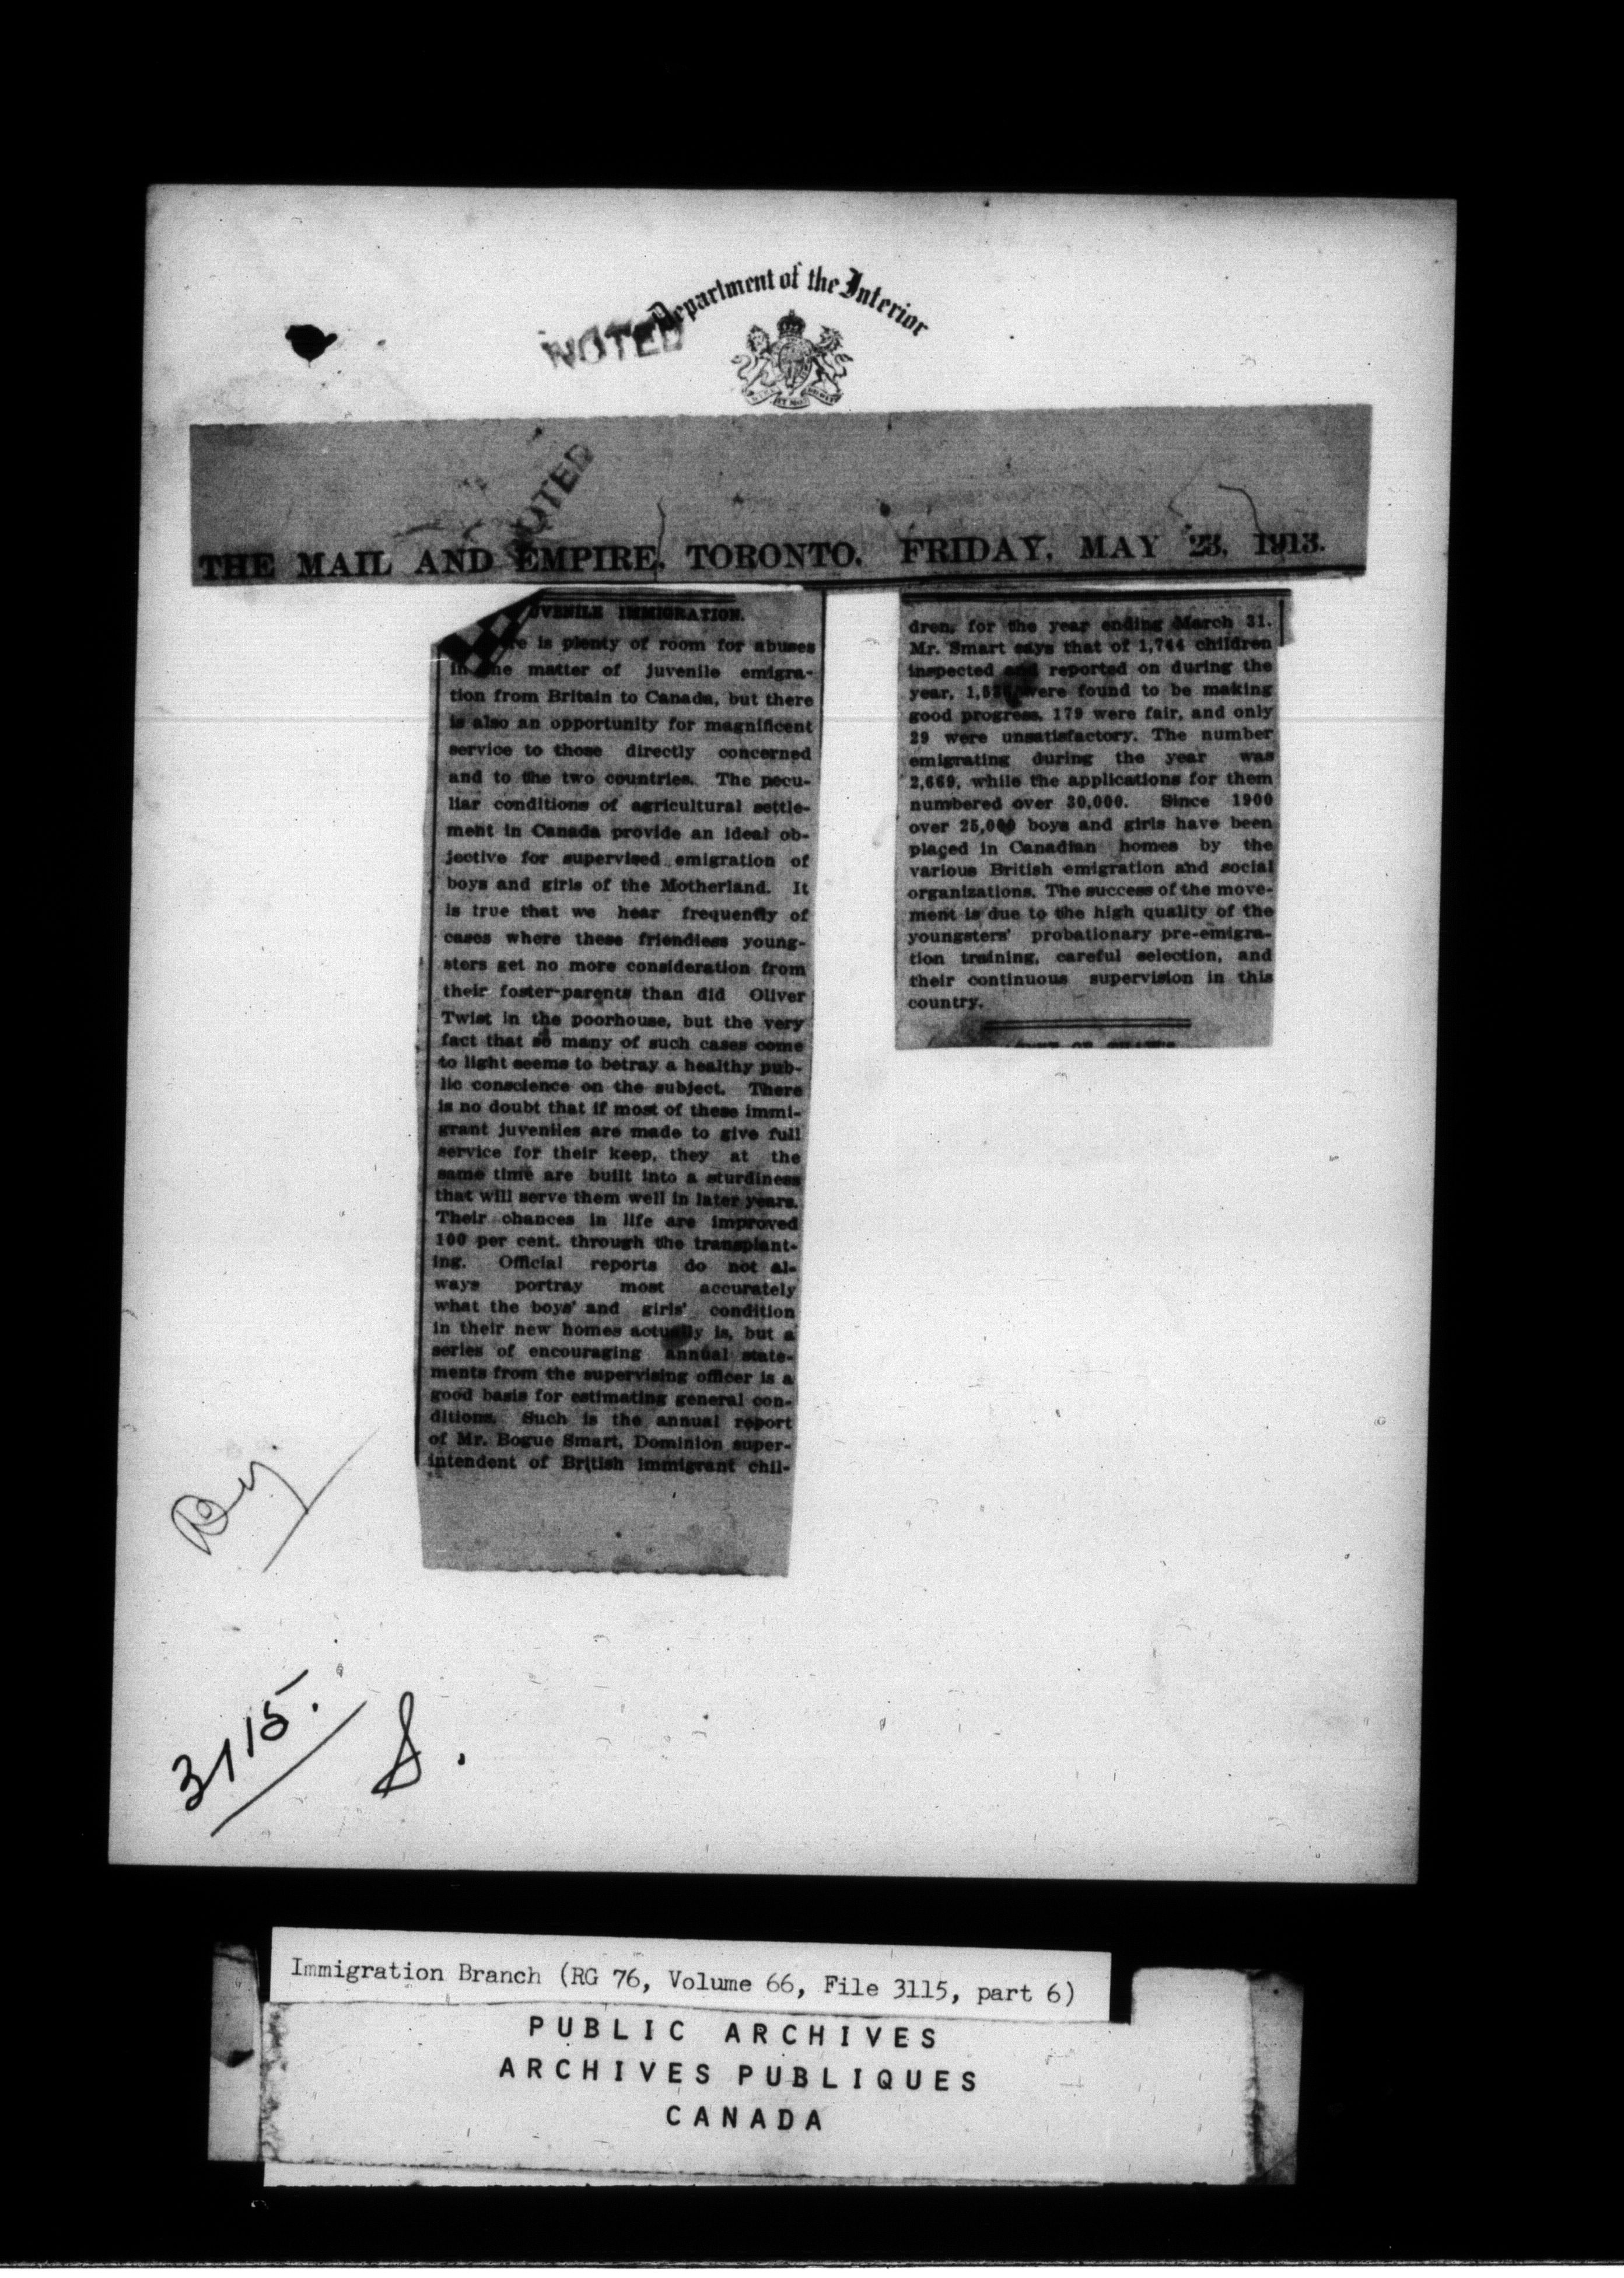 Department of the Interior
NOTED
NOTED
THE MAIL AND EMPIRE, TORONTO. FRIDAY, MAY 23, 1913.
JUVENILE IMMIGRATION.
is plenty of room for abuses
in the matter of juvenile emigra-
tion from Britain to Canada, but there
is also an opportunity for magnificent
service to those directly concerned
and to the two countries. The pecu-
liar conditions of agricultural settle-
ment in Canada provide an ideal ob-
jective for supervised emigration of
boys and girls of the Motherland. It
is true that we hear frequently of
cases where these friendless young-
sters get no more consideration from
their foster-parents than did Oliver
Twist in the poorhouse, but the very
fact that so many of such cases come
to light seems to betray a healthy pub-
lic conscience on the subject. There
is no doubt that if most of these immi-
grant juveniles are made to give full
service for their keep, they at the
same time are built into a sturdiness
that will serve them well in later years.
Their chances in life are improved
100 per cent. through the transplant-
ing. Official reports do not al-
ways portray most accurately
what the boys' and girls' condition
in their new homes actually is, but a
series of encouraging annual state-
ments from the supervising officer is a
good basis for estimating general con-
ditions. Such is the annual report
of Mr. Bogue Smart, Dominion super-
intendent of British immigrant chil-
dren, for the year ending March 31.
Mr. Smart says that of 1,744 children
inspected and reported on during the
year, were found to be making
good progress, 179 were fair, and only
29 were unsatisfactory. The number
emigrating during the year was
2,669, while the applications for them
numbered over 30,000. Since 1900
over 25,000 boys and girls have been
placed in Canadian homes by the
various British emigration and social
organizations. The success of the move-
ment is due to the high quality of the
youngsters' probationary pre-emigra-
tion training, careful selection, and
their continuous supervision in this
country.
3115.
S.
Immigration Branch (RG 76, Volume 66, File 3115, part 6)
PUBLIC ARCHIVES
ARCHIVES PUBLIQUES
CANADA